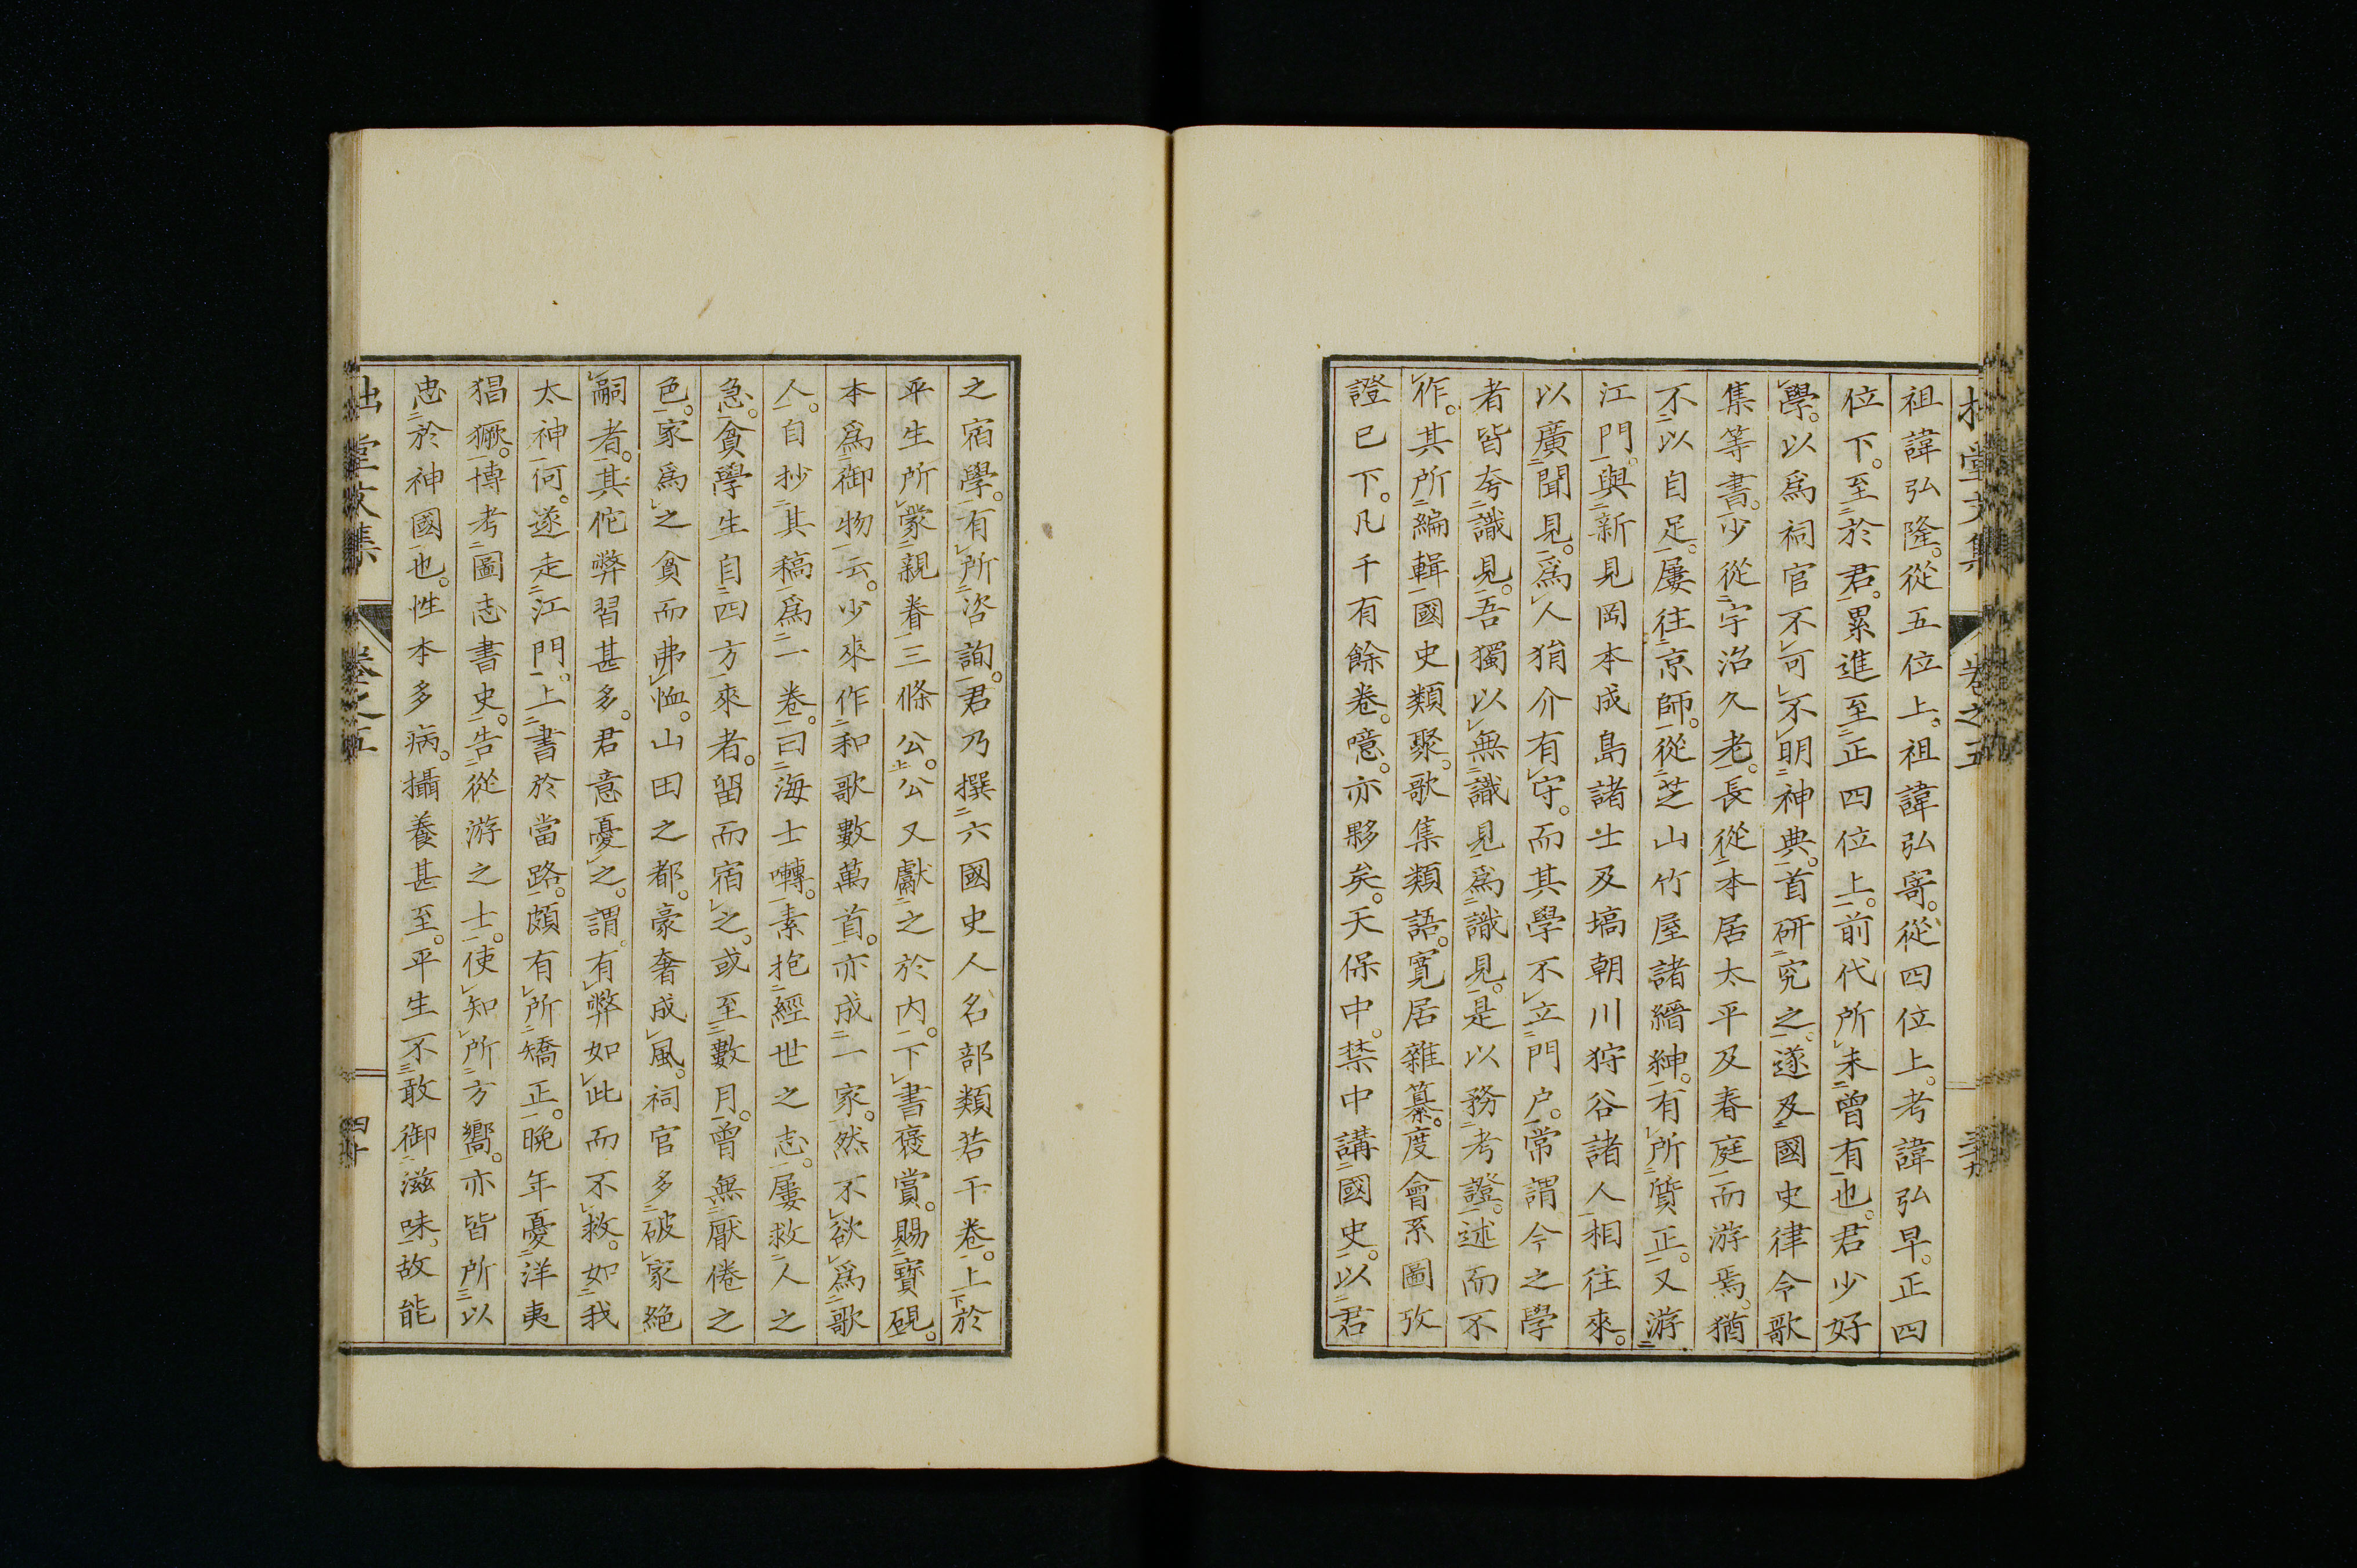 拙堂文集 卷之五 三十九
祖諱弘隆。從五位上。祖諱弘寄。從四位上。考諱弘早。正四
位下。至於君。累進至正四位上。前代所未曾有也。君少好
學。以爲祠官不可不明神典。首研究之。遂及國史律令歌
集等書。少從宇治久老。長從本居太平及春庭而游焉。猶
不以自足。屢往京師。從芝山竹屋諸縉紳。有所質正。又游
江門。與新見岡本成島諸士及塙朝川狩谷諸人相往來。
以廣聞見。爲人狷介有守。而其學不立門户。常謂今之學
者皆夸識見。吾獨以無識見爲識見。是以務考證。述而不
作。其所編輯國史類聚。歌集類語。寬居雜纂。度會系圖攷
證已下。凡千有餘卷。噫。亦夥矣。天保中。禁中講國史。以君
之宿學。有所咨詢。君乃撰六國史人名部類若干卷。上於
平生所蒙親眷三條公。公又獻之於内。下書褒賞。賜寶硯。
本爲御物云。少來作和歌數萬首。亦成一家。然不欲爲歌
人。自抄其稿爲一卷。曰海士囀。素抱經世之志。屢救人之
急。貧學生自四方來者。留而宿之。或至數月。曾無厭倦之
色。家爲之貧而弗恤。山田之都。豪奢成風。祠官多破家絶
嗣者。其佗弊習甚多。君意憂之。謂有弊如此而不救。如我
太神何。遂走江門。上書於當路。頗有所矯正。晩年憂洋夷
猖獗。博考圖志書史。告從游之士。使知所方嚮。亦皆所以
忠於神國也。性本多病。攝養甚至。平生不敢御滋味。故能
拙堂文集 卷之五 四十